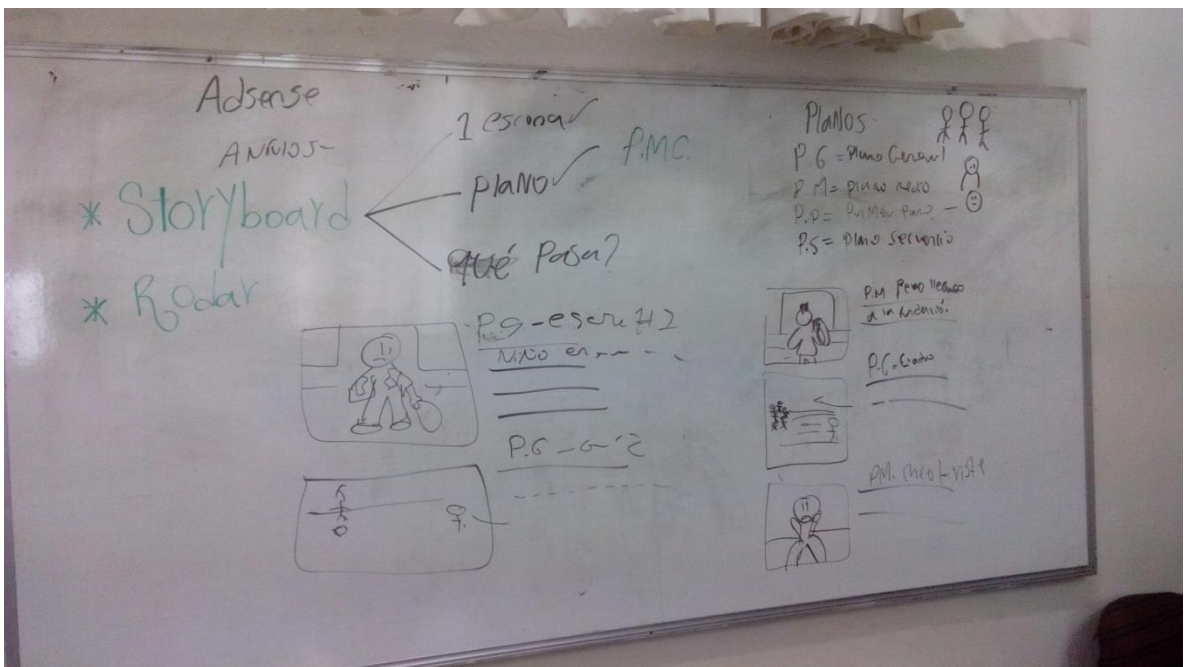 Adsense
* Storyboard
* Rodar
1 escena
plano
P.M.C.
qué Pasa?
P.G - escn #2
Niño en
P.G - 
Planos
P.G = Plano General
P.M = plano medio
P.P = Primer Plano -
P.S = plano secuencia
P.M Pewo llegando
a la
P.G - 
P.M. chico triste